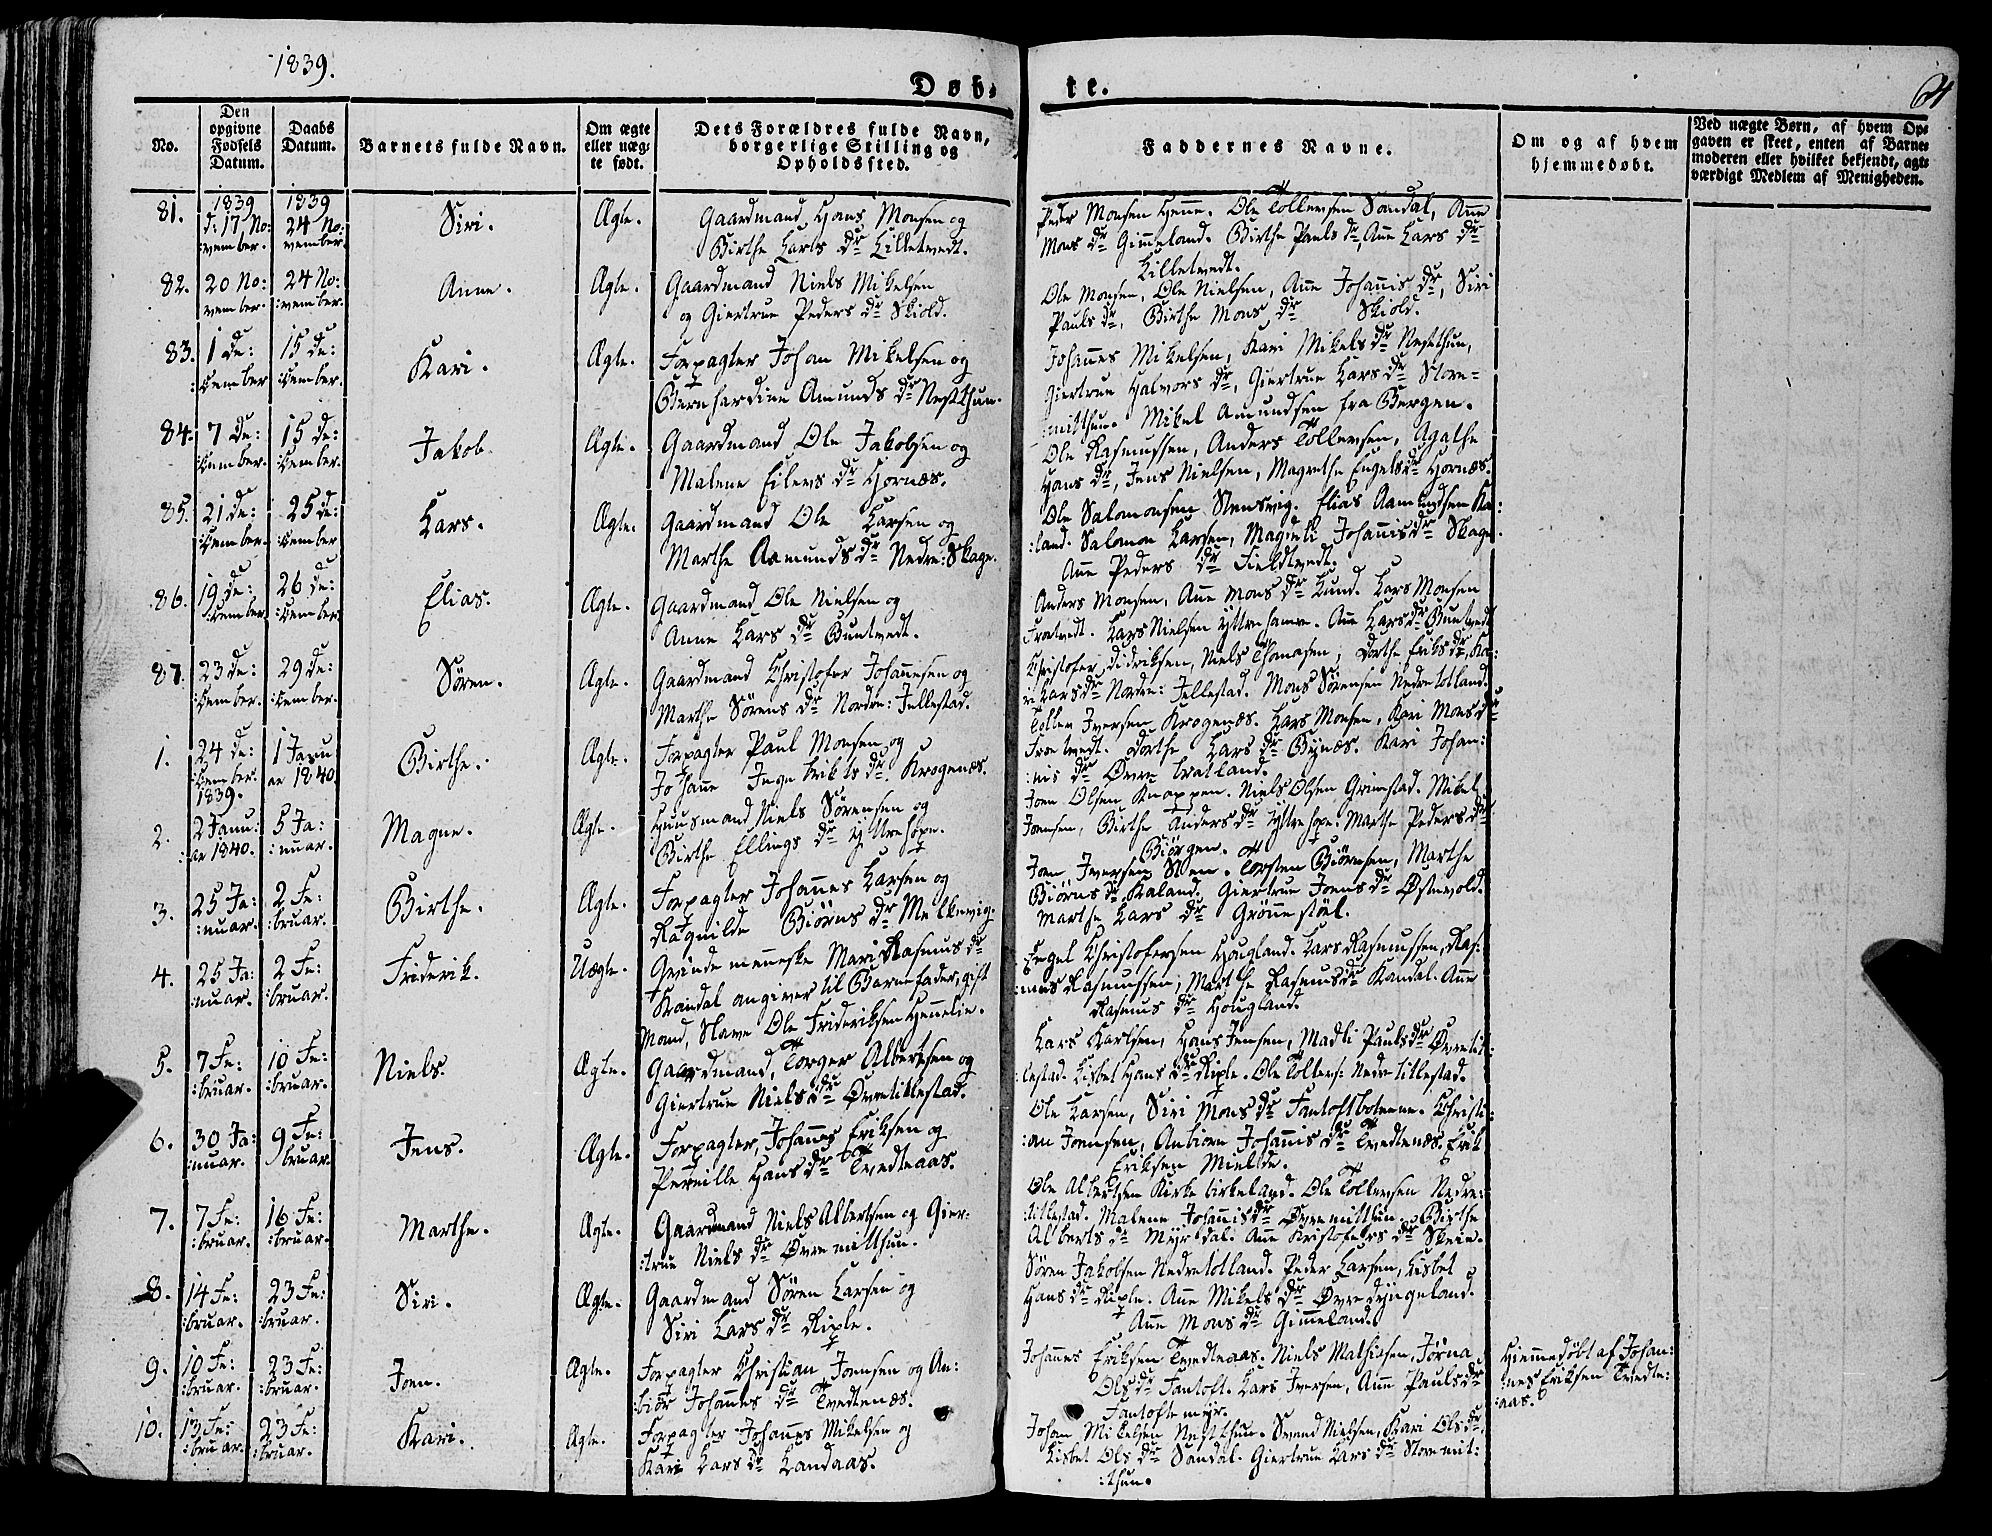 1839.
Døb-
te.
No.
Den opgivne Fødsels Datum.
Daabs Datum.
Barnets fulde Navn.
Om ægte eller uægte født.
Dets Forældres fulde Navn, borgerlige Stilling og Opholdssted.
Faddernes Navne.
Om og af hvem hjemmedøbt.
Ved uægte Børn, af hvem Opgaven er skeet, enten af Barnemoderen eller hvilket bekjendt, agtværdigt Medlem af Menigheden.
81.
1839 d: 17 No: vember.
1839 24 No: vember.
Siri.
Ægte.
Gaardmand Hans Monsen og
Birthe Lars dr Lilletvedt.
Peder Monsen Henne. Ole Tollevsen Sandal, Anne
Mons dr Gimmeland. Birthe Pauls dr, Anne Lars dr
Lilletvedt.
82.
20 No: vember.
24 No: :vember.
Anne.
Ægte.
Gaardmand Niels Mikelsen
og Giertrue Peders dr Skiold.
Ole Monsen, Ole Nielsen, Anne Johannis dr, Siri
Pauls dr, Birthe Mons dr Skiold.
83.
1 De: :cember
15 De: :cember.
Kari.
Ægte.
Forpagter Johan Mikelsen og
Bernhardine Amunds dr Nestthun.
Johannes Mikelsen, Kari Mikels dr Nestthun,
Giertrue Halvors dr, Giertrue Lars dr Store-
:mitthun. Mikel Amundsen fra Bergen.
84.
7 De: :cember.
15 De: :cember.
Jakob.
Ægte.
Gaardmand Ole Jakobsen og
Malene Eilers dr Hornæs.
Ole Rasmussen, Anders Tollevsen, Agathe
Hans dr, Jens Nielsen, Magrethe Engels dr Hornæs.
85.
21 De: :cember.
25 De: :cember
Lars.
Ægte.
Gaardmand Ole Larsen og
Marthe Aamunds dr Nedre: Skage.
Ole Salomonsen Stensvig. Elias Aamundsen Ka:
:land. Salomon Larsen, Magdeli Johannis dr Skage.
Anne Peders dr Fieldtvedt.
86.
19 De: :cember
26 De: :cember.
Elias.
Ægte.
Gaardmand Ole Nielsen og
Anne Lars dr Buntvedt.
Anders Monsen, Anne Mons dr Lund. Lars Monsen
Trætvedt. Lars Nielsen Yttrehamre. Anne Lars dr Buntvedt
87.
23 De: :cember.
29 De: :cember.
Søren.
Ægte.
Gaardmand Christofer Johannesen og
Marthe Sørens dr Nordre: Jellestad.
Christofer Didriksen, Niels Thomasen, Dorthe Eriks dr, Ka:
ri Lars dr Nordre: Jellestad. Mons Sørensen Nedretotland.
1.
24 De: :cember. 1839.
1 Janu ar 1840
Birthe.
Ægte.
Forpagter Paul Monsen og
Johanne Ingebrikts dr Krogenæs.
Tollev Iversen Krogenæs. Lars Monsen, Kari Mons dr
Trætvedt. Dorthe Lars dr Bynæs. Kari Johan:
:nis dr Øvre bratland.
2.
2 Janu: :ar 1840.
5 Ja: :nuar.
Magne.
Ægte.
Huusmand Niels Sørensen og
Birthe Ellings dr Yttrehope.
Joen Olsen Knappen. Niels Olsen Grimstad. Mikel
Joensen, Birthe Anders dr Yttrehope. Marthe Peders dr
Biørgen.
3.
25 Ja: :nuar.
2 Fe: :bruar.
Birthe.
Ægte.
Forpagter Johannes Larsen og
Ragnilde Biørns dr Melkevig.
Joen Iversen Steen. Torsten Biørnsen, Marthe
Biørns dr Kaland. Giertrue Joens dr Østevold.
Marthe Lars dr Grønnestøel.
4.
25 Ja: :nuar.
2 Fe: :bruar.
Friderik.
Uægte.
Qvindemenneske Mari Rasmus dr
Kandal angiver til Barnefader, gift
Mand, Slave Ole Frideriksen Hennelie.
Engel Christofersen Hougland. Lars Rasmussen, Ras:
:mus Rasmussen, Marthe Rasmus dr Kandal. Anne
Rasmus dr Hougland.
5.
7 Fe: :bruar.
10 Fe: :bruar.
Niels.
Ægte.
Gaardmand, Torger Albertsen og
Giertrue Niels dr Øvretitlestad.
Lars Karlsen, Hans Jensen, Madli Pauls dr Øvretit:
:lestad. Lisbet Hans dr Riple. Ole Tollevs: Nedretitlestad.
6.
30 Ja: :nuar.
9 Fe: bruar.
Jens.
Ægte.
Forpagter, Johannes Eriksen og
Pernille Hans dr Tvedteaas.
Ole Larsen, Siri Mons dr Fantoftbotnene. Christi:
:an Joensen, Anbiøre Johannis dr Tvedtenæs. Erik
Eriksen Mielde.
7.
7 Fe: :bruar.
16 Fe: :bruar.
Marthe.
Ægte.
Gaardmand Niels Albertsen og Gier:
:true Niels dr Øvremitthun.
Ole Albertsen Kirkebirkeland. Ole Tollevsen Nedre:
:titlestad. Malene Johannis dr Øvremitthun. Birthe
Alberts dr Myrdal. Anne Kristofers dr Skeie.
8.
14 Fe: :bruar.
23 Fe: :bruar.
Siri.
Ægte.
Gaardmand Søren Larsen og
Siri Lars dr Riple.
Søren Jakobsen Nedretotland. Peder Larsen, Lisbet
Hans dr Riple. Anne Mikels dr Øvredyngeland.
Anne Mons dr Gimmeland.
9.
10 Fe: :bruar.
23 Fe: :bruar.
Joen.
Ægte.
Forpagter Christian Joensen og An:
:biør Johannes dr Tvedtenæs.
Johannes Eriksen Tvedteaas. Niels Mathisen, Jørna
Ols dr Fantoft. Lars Iversen, Anne Pauls dr
Fantoftemyr.
Hiemmedøbt af Johan:
:nes Eriksen Tvedte:
:aas.
10.
13 Fe: :bruar.
23 Fe: :bruar.
Kari.
Ægte.
Forpagter Johannes Mikelsen og
Kari Lars dr Landaas.
Johan Mikelsen Nestthun. Svend Nielsen, Kari Ols dr,
Lisbet Ols dr Sandal. Giertrue Lars dr Storemit:
:thun.